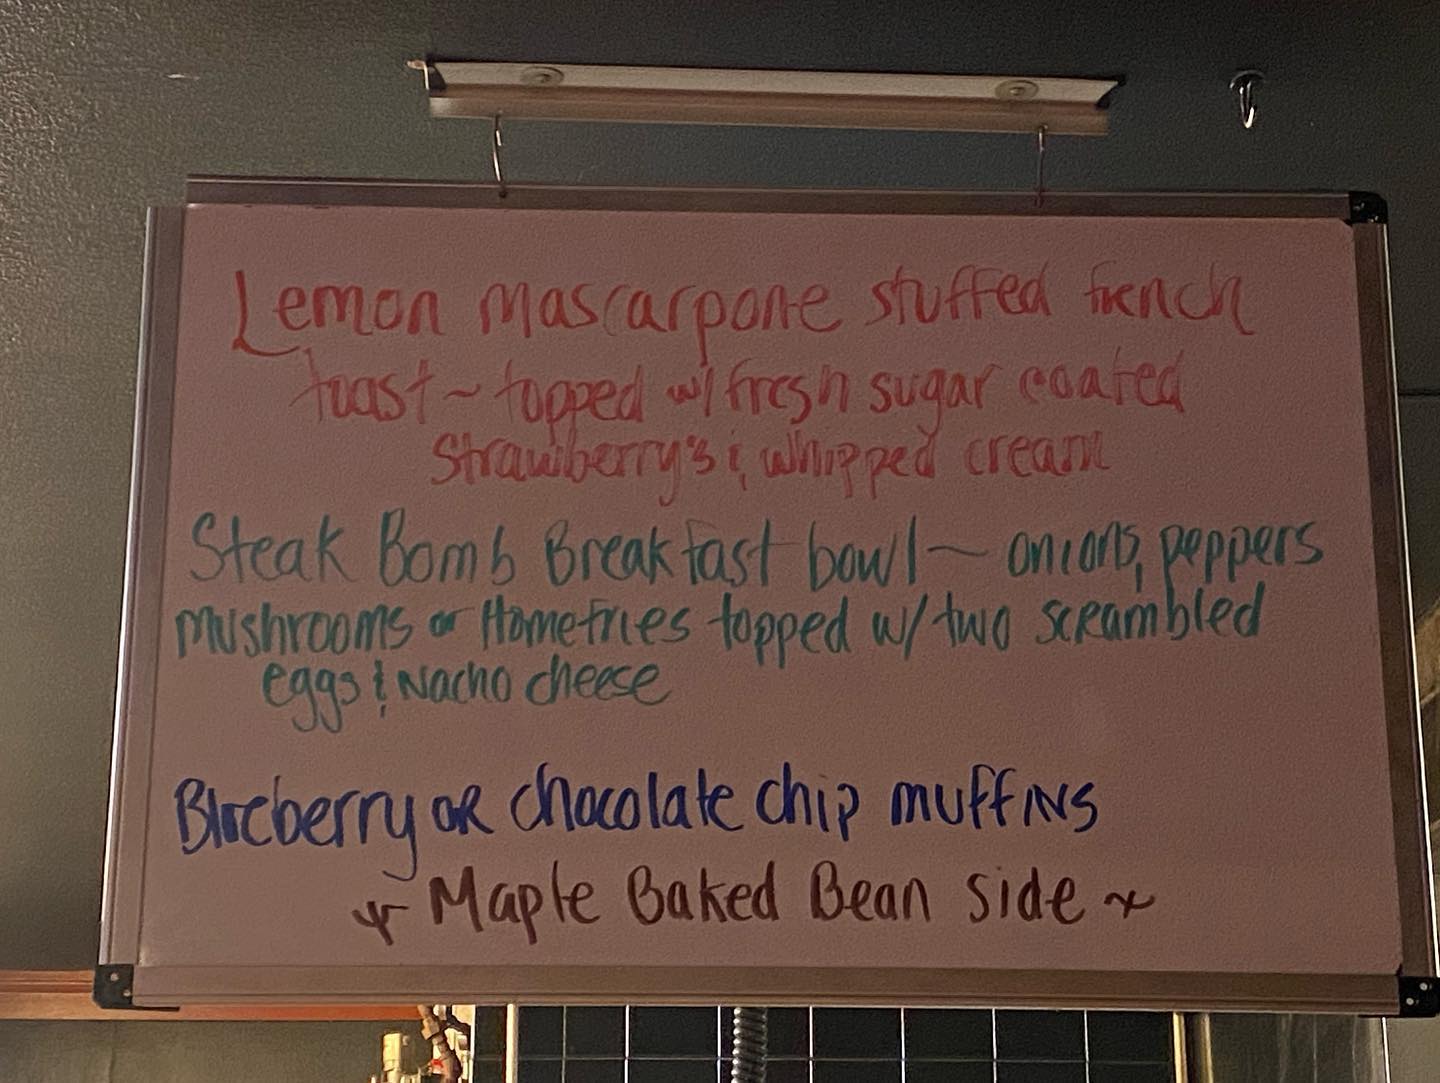 Lemon mascarpone stuffed french
toast ~ topped w/ fresh sugar coated
strawberry's & whipped cream
Steak Bomb Breakfast bowl ~ onions, peppers
mushrooms or Homefries topped w/ two scrambled
eggs & Nacho cheese
Blueberry OR chocolate chip muffins
~ Maple Baked Bean side ~